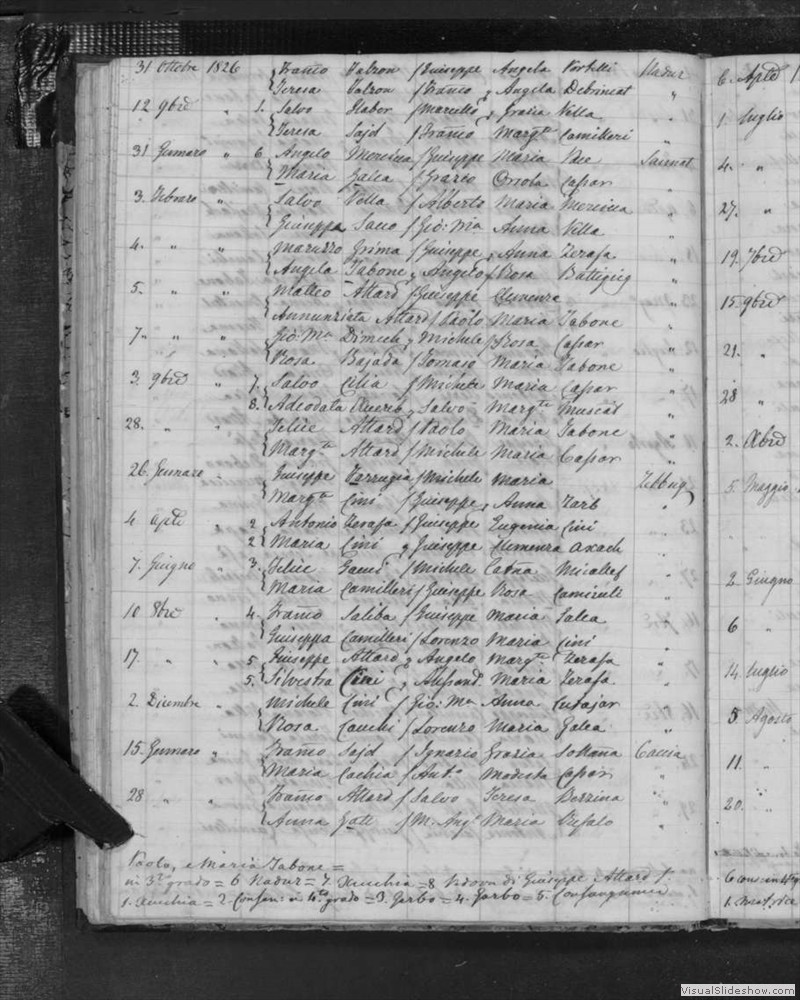 31 Ottobre 1826 Franco Falzon / Giuseppe Angela Portelli Nadur
Teresa Falzon / Franco, Angela Debrincat "
12 9bre " 1. Salvo / Marcello, Grazia Vella
Teresa Sajd / Franco Margta Camilleri "
31 Gennaro " 6 Angelo Mercieca / Giuseppe Maria Sannat
Maria Galea / Grazio Orsola Caspar "
3. Febraro " Salvo Vella / Alberto Maria Mercieca "
Giuseppa / Gio: Ma Anna Vella "
4. " " Maruzzo Grima / Giuseppe, Anna Zerafa "
Angela Tabone, Angelo / Rosa Battigieg "
5. " " Matteo Attard / Giuseppe Clemenza "
Annunziata Attard / Paolo Maria Tabone "
7. " " Gio: Ma Dimech, Michele / Rosa Caspar "
Rosa Bajada / Tomaso Maria Tabone "
3. 9bre " 7. Salvo Cilia / Michele Maria Caspar "
8. Adeodata Xuereb, Salvo Margta Muscat "
28. " " Felice Attard / Paolo Maria Tabone "
Margta Attard / Michele Maria Caspar "
26. Gennaro " Giuseppe Farrugia / Michele Maria Zebbug
Margta Cini / Giuseppe, Anna Zarb "
4 Aple " 2 Antonio Zerafa / Giuseppe Eugenia Cini "
2 Maria Cini, Giuseppe Clemenza Axach "
7. Giugno " 3. Felice / Michele Micallef "
Maria Camilleri / Giuseppe Rosa "
10 8bre " 4. Franco Saliba / Giuseppe Maria Galea "
Giuseppa Camilleri / Lorenzo Maria Cini "
17. " " 5 Giuseppe Attard, Angelo Margta Zerafa "
5. Silvestra Cini, Alessand. Maria Zerafa "
2. Dicembre " Michele Cini / Gio: Ma Anna Cutajar "
Rosa Cauchi / Lorenzo Maria Galea "
15. Gennaro " Franco Sajd / Ignazio Grazia Soltana Caccia
Maria Cachia / Anto Modesta Caspar "
28 " " Franco Attard / Salvo Teresa Bezzina "
Anna / M. Ang. Maria Bufalo "
Paolo, e Maria Tabone =
in 3zo grado = 6 Nadur = 7. Xeuchia = 8 Vedova di Giuseppe Attard
1. Xeuchia = 2 Consan: in 4to grado = 3. Garbo = 4. Garbo = 5. Consanguinei
6. Aple
1. Luglio
4. "
27. "
19. 7bre
15. 9bre
21. "
28 "
2. Xbre
5. Maggio
2. Giugno
6 "
14. Luglio
5. Agosto
11. "
20. "
VisualSlideshow.com